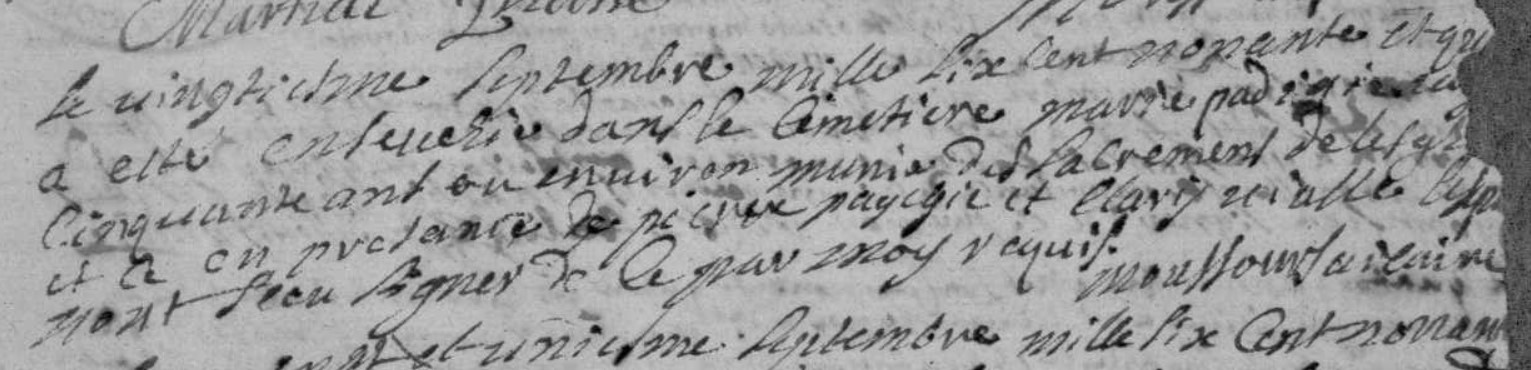 Martial
le vingtiesme septembre mille six cent nonante et qu
a esté ensevelie dans le cimetiere marie padigie
cinquante ans ou environ munie des sacrement de lesgl
et ce en presance de pierre payegie et clary vialle lesq
nont sceu signer de ce par moy requis.
et uniesme septembre mille six cent nonan